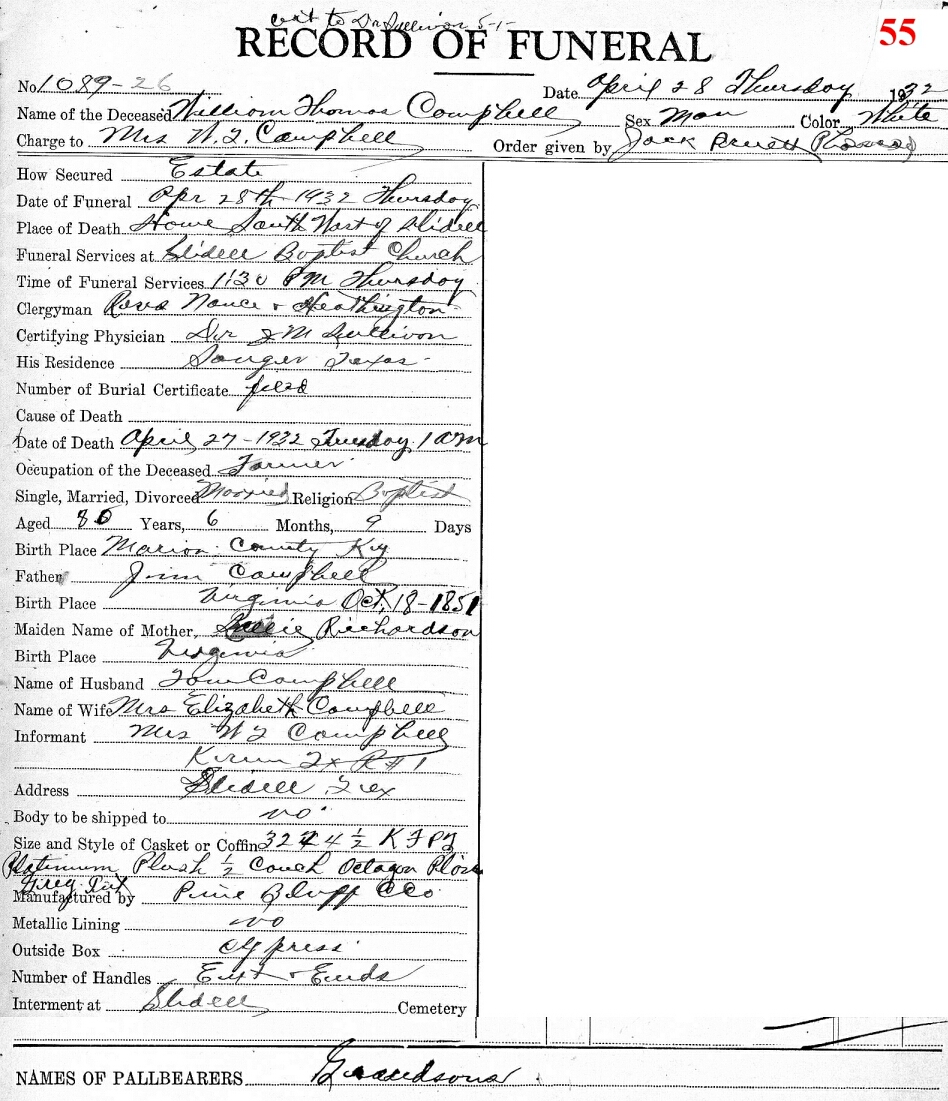 cert to Dr Sullivan 5-1-
55
RECORD OF FUNERAL
No. 1089-26 Date April 28 Thursday 1932
Name of the Deceased William Thomas Campbell Sex Man Color White
Charge to Mrs W.T. Campbell Order given by Jack Pruett
How Secured Estate
Date of Funeral Apr 28th 1932 Thursday
Place of Death Home South West of Slidell
Funeral Services at Slidell Baptist Church
Time of Funeral Services 1:30 PM Thursday
Clergyman Revs Nance & Heathington
Certifying Physician Dr J M Sullivan
His Residence Sanger Texas
Number of Burial Certificate filed
Cause of Death
Date of Death April 27-1932 Tuesday 1 AM
Occupation of the Deceased Farmer
Single, Married, Divorced Married Religion Baptist
Aged 80 Years, 6 Months, 9 Days
Birth Place Marion County Ky
Father Jim Campbell
Birth Place Virginia Oct, 18-1851
Maiden Name of Mother, Richardson
Birth Place Virginia
Name of Husband Tom Campbell
Name of Wife Mrs Elizabeth Campbell
Informant Mrs W T Campbell
Krum Tx R#1
Address Slidell Tex
Body to be shipped to no
Size and Style of Casket or Coffin 32 4 1/2 K F P
Platinum Plush 1/2 Couch Octagon
Grey
Manufactured by Pine Bluff CCo
Metallic Lining no
Outside Box Cypress
Number of Handles Ext & Ends
Interment at Slidell Cemetery
NAMES OF PALLBEARERS Grandsons